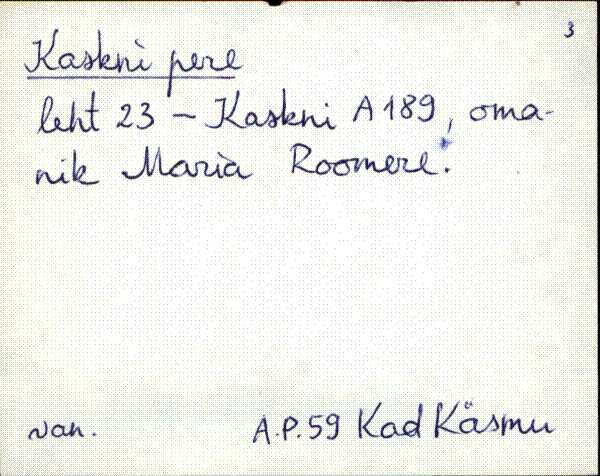 3
Kaskni pere
leht 23 – Kaskni A 189, oma-
nik Maria Roomere.
van. A.P.59 Kad Käsmu